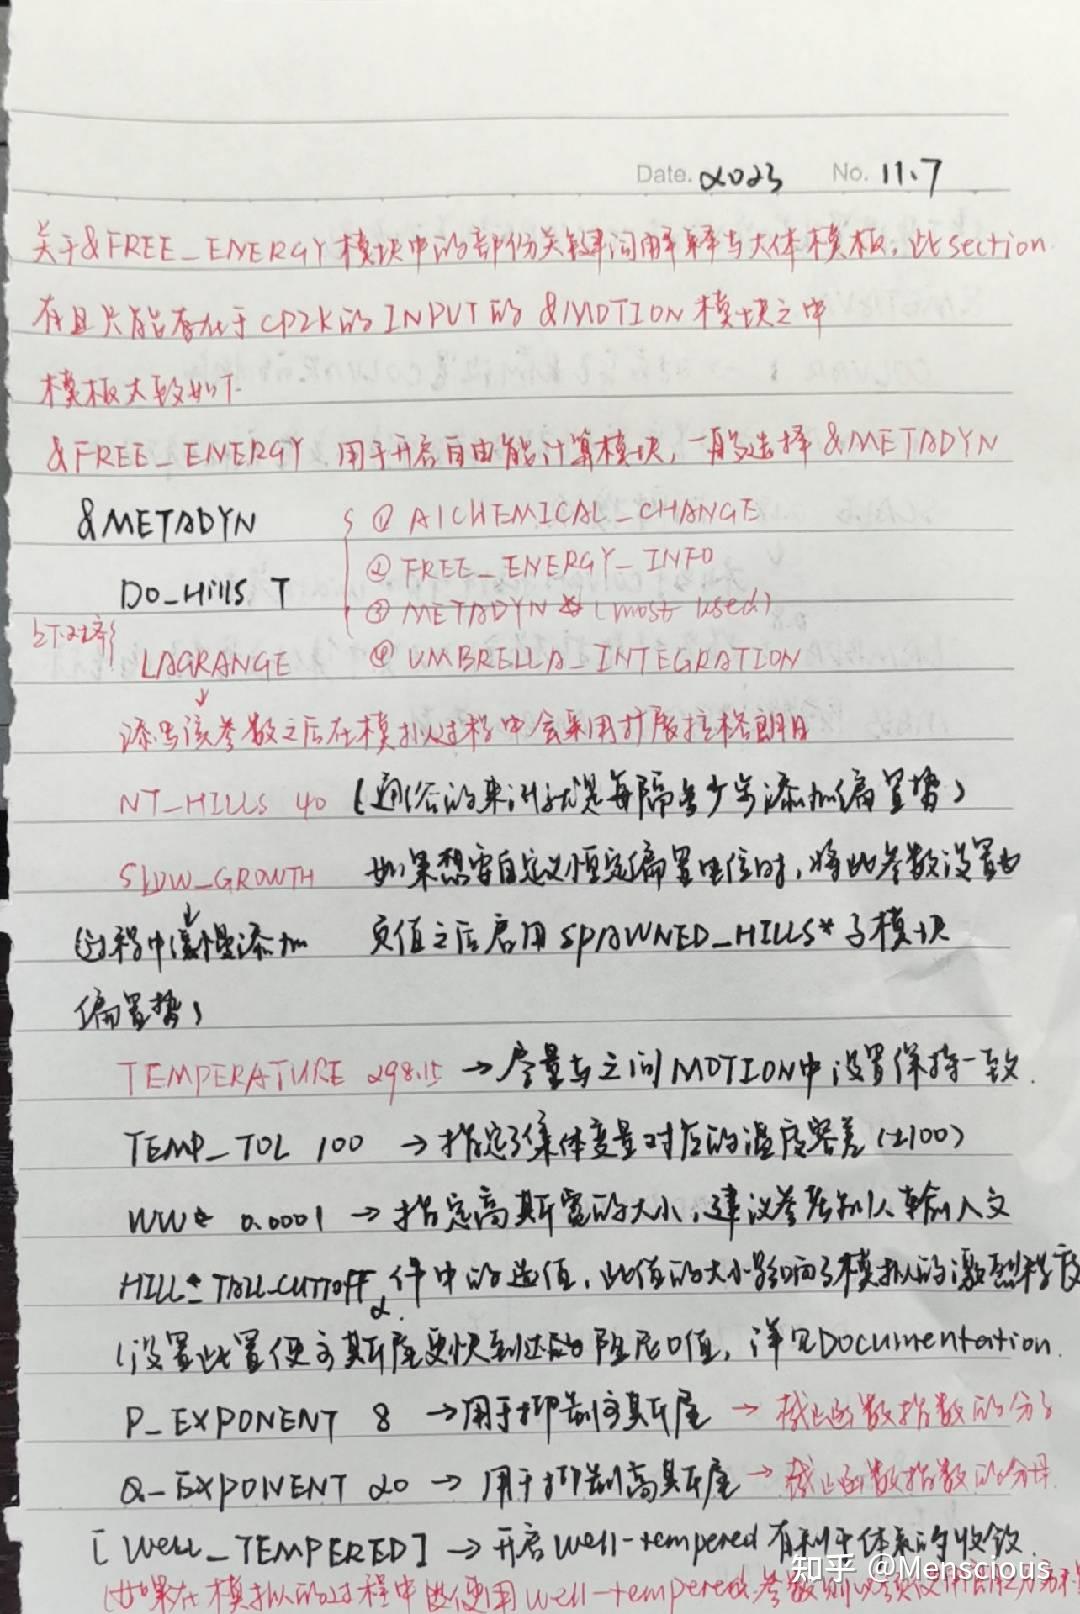 Date. 2023 No. 11.7
关于&FREE_ENERGY模块中的部份关键词解释与大体模板, 此section
有且只能存在于CP2K的INPUT的&MOTION模块之中
模板大致如下
&FREE_ENERGY 用于开启自由能计算模块, 一般选择&METADYN
&METADYN ① AlCHEMICAL_CHANGE
② FREE_ENERGY_INFO
DO_Hills T ③ METADYN (most used)
上下对齐 LAGRANGE ④ UMBRELLA_INTEGRATION
添写该参数之后在模拟过程中会采用扩展拉格朗日
NT_HILLS 40 (通俗的来讲就是每隔多少步添加偏置势)
SLOW_GROWTH 如果想要自定义恒定偏置电位时, 将此参数设置为
(过程中缓慢添加 负值之后启用SPAWNED_HILLS*子模块
偏置势)
TEMPERATURE 298.15 → 尽量与之间MOTION中设置保持一致.
TEMP_TOL 100 → 指定了集体变量对应的温度容差(±100)
WW 0.0001 → 指定高斯宽的大小, 建议参考别人输入文
HILL_TAIL_CUTTOFF 2 件中的选值, 此值的大小影响了模拟的激烈程度
(设置此置使高斯尾更快到达的阻尼0值, 详见Documentation.
P_EXPONENT 8 → 用于抑制高斯尾 → 截止函数指数的分子
Q_EXPONENT 20 → 用于抑制高斯尾 → 截止函数指数的分母.
[Well_TEMPERED] → 开启well-tempered有利于体系的收敛.
(如果在模拟的过程中使用well-tempered参数则
知乎 @Menscious